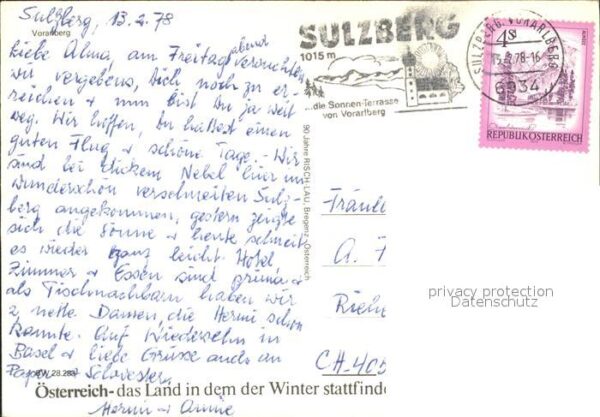 Sulzberg, 13.2.78
Vorarlberg
Liebe Alma, am Freitag abend versuchten
wir vergebens, Dich noch zu er-
reichen & nun bist Du ja weit
weg. Wir hoffen, Du hattest einen
guten Flug & schöne Tage. - Wir
sind bei dickem Nebel hier im
wunderschön verschneiten Sulz-
berg angekommen, gestern zeigte
sich die Sonne & heute schneit
es wieder ganz leicht. Hotel
Zimmer & Essen sind prima &
als Tischnachbarn haben wir
2 nette Damen, die Hermi schon
kannte. Auf Wiedersehn in
Basel & liebe Grüsse auch an
Schwester
Hermi & Annie
SULZBERG
1015 m
...die Sonnen-Terrasse
von Vorarlberg
SULZBERG, VORARLBERG
13.2.78-16
6934
4S
REPUBLIK ÖSTERREICH
90 Jahre RISCH-LAU, Bregenz, Österreich
Fräule
A. F
Riehe
CH-405
privacy protection
Datenschutz
28.283
Österreich - das Land in dem der Winter stattfinde